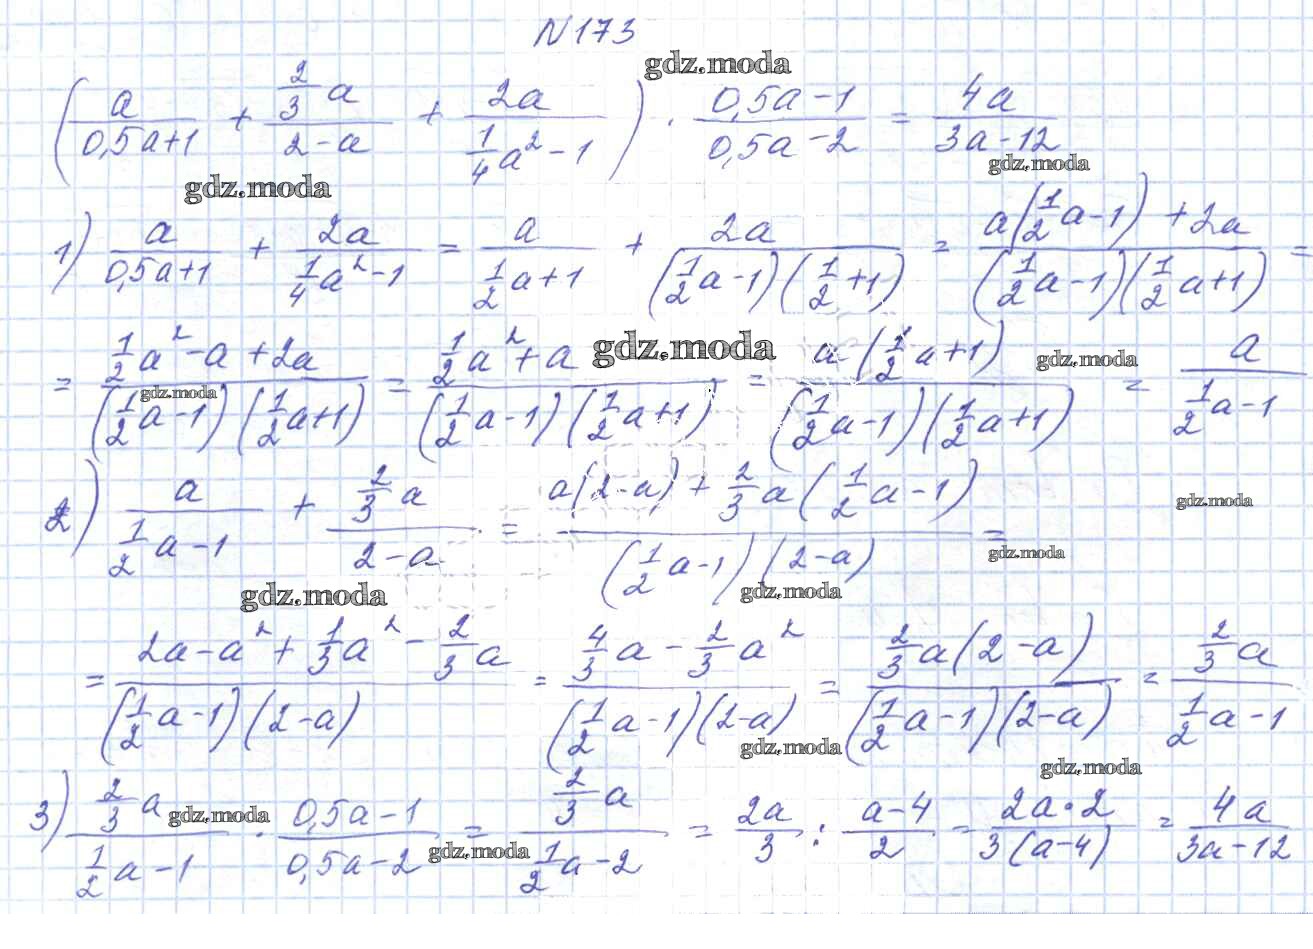 N 173
gdz.moda
(a/(0,5a+1) + (2/3 a)/(2-a) + 2a/(1/4 a² - 1)) · (0,5a-1)/(0,5a-2) = 4a/(3a-12)
gdz.moda gdz.moda
1) a/(0,5a+1) + 2a/(1/4 a² - 1) = a/(1/2 a+1) + 2a/((1/2 a-1)(1/2+1)) = (a(1/2 a-1)+2a)/((1/2 a-1)(1/2 a+1)) =
= (1/2 a² - a + 2a)/((1/2 a-1)(1/2 a+1)) = (1/2 a² + a)/((1/2 a-1)(1/2 a+1)) = a(1/2 a+1)/((1/2 a-1)(1/2 a+1)) = a/(1/2 a-1)
gdz.moda gdz.moda gdz.moda
2) a/(1/2 a-1) + (2/3 a)/(2-a) = (a(2-a) + 2/3 a(1/2 a-1))/((1/2 a-1)(2-a)) =
gdz.moda gdz.moda
gdz.moda gdz.moda
= (2a - a² + 1/3 a² - 2/3 a)/((1/2 a-1)(2-a)) = (4/3 a - 2/3 a²)/((1/2 a-1)(2-a)) = 2/3 a(2-a)/((1/2 a-1)(2-a)) = (2/3 a)/(1/2 a-1)
gdz.moda gdz.moda
3) (2/3 a)/(1/2 a-1) · (0,5a-1)/(0,5a-2) = (2/3 a)/(1/2 a-2) = 2a/3 : (a-4)/2 = 2a·2/(3(a-4)) = 4a/(3a-12)
gdz.moda gdz.moda